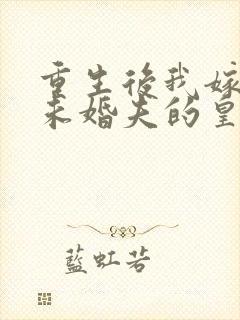 重生後我嫁
未婚夫的皇
藍虹若